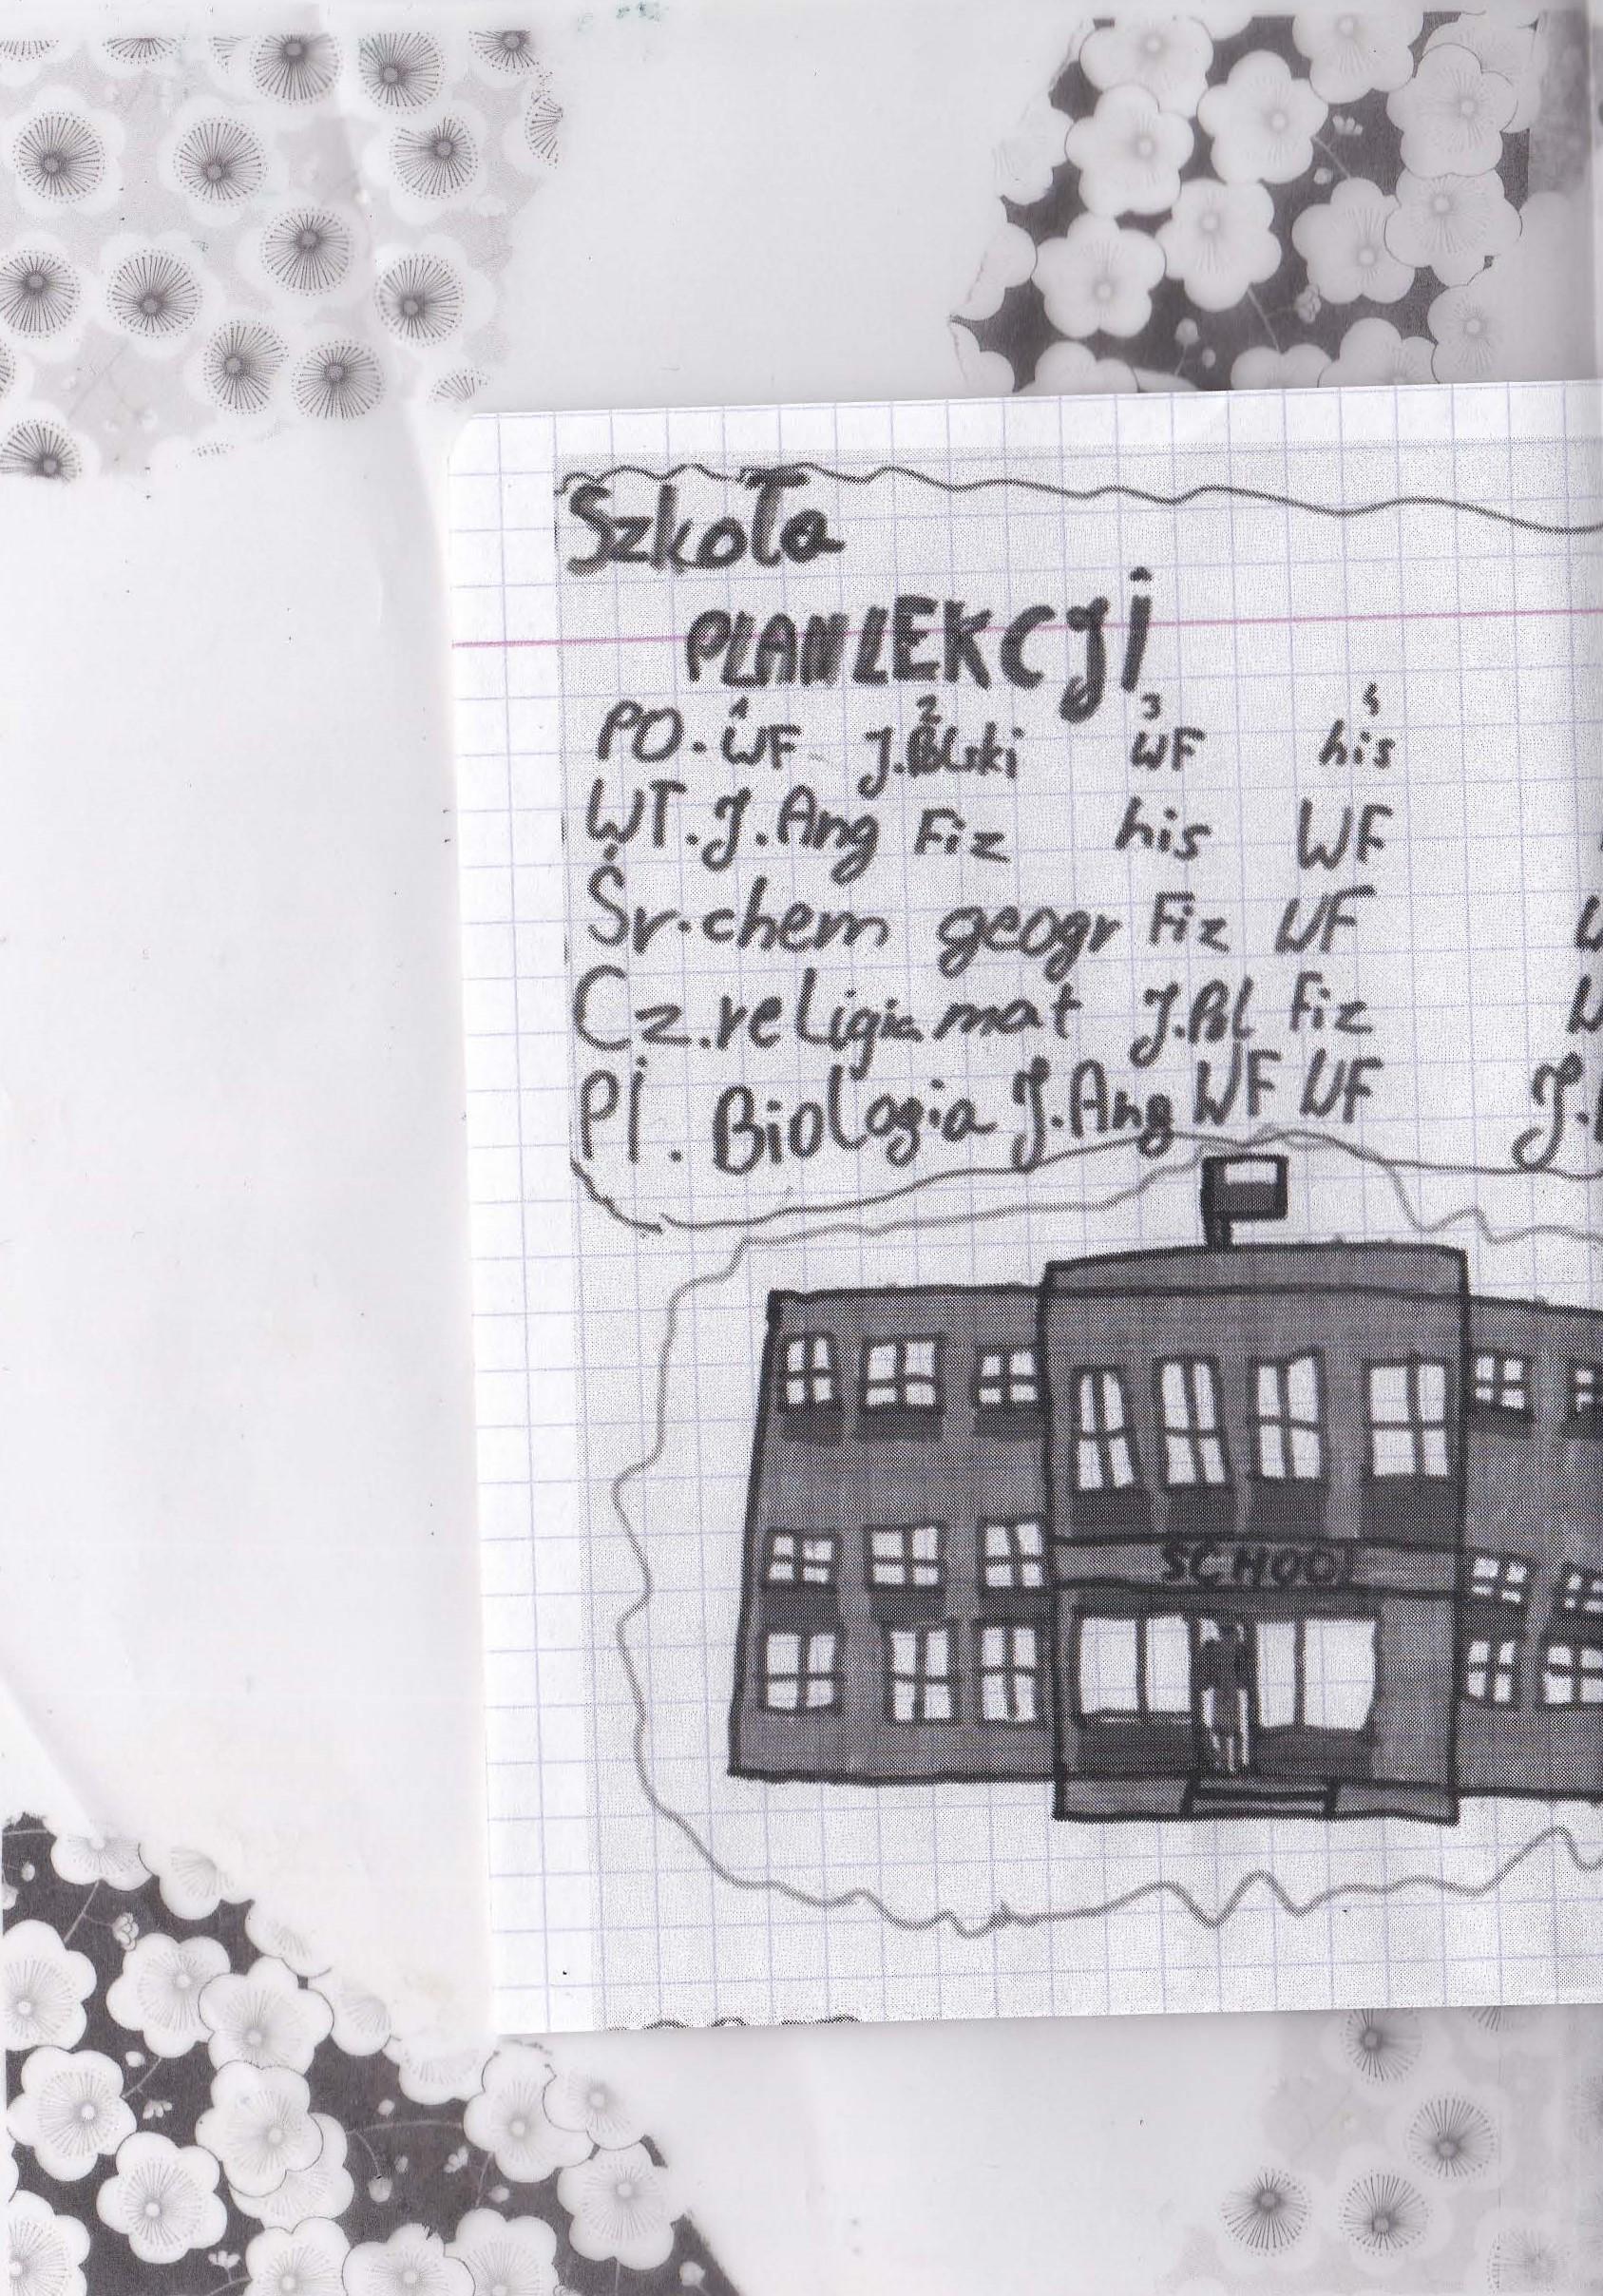 Szkoła
PLAN LEKCJI
1 2 3 4
PO. WF J.Polski WF his
WT. J. Ang Fiz his WF
Śr. chem geogr Fiz WF
Cz. religia mat J.Pol Fiz
Pi. Biologia J. Ang WF WF J.
SCHOOL